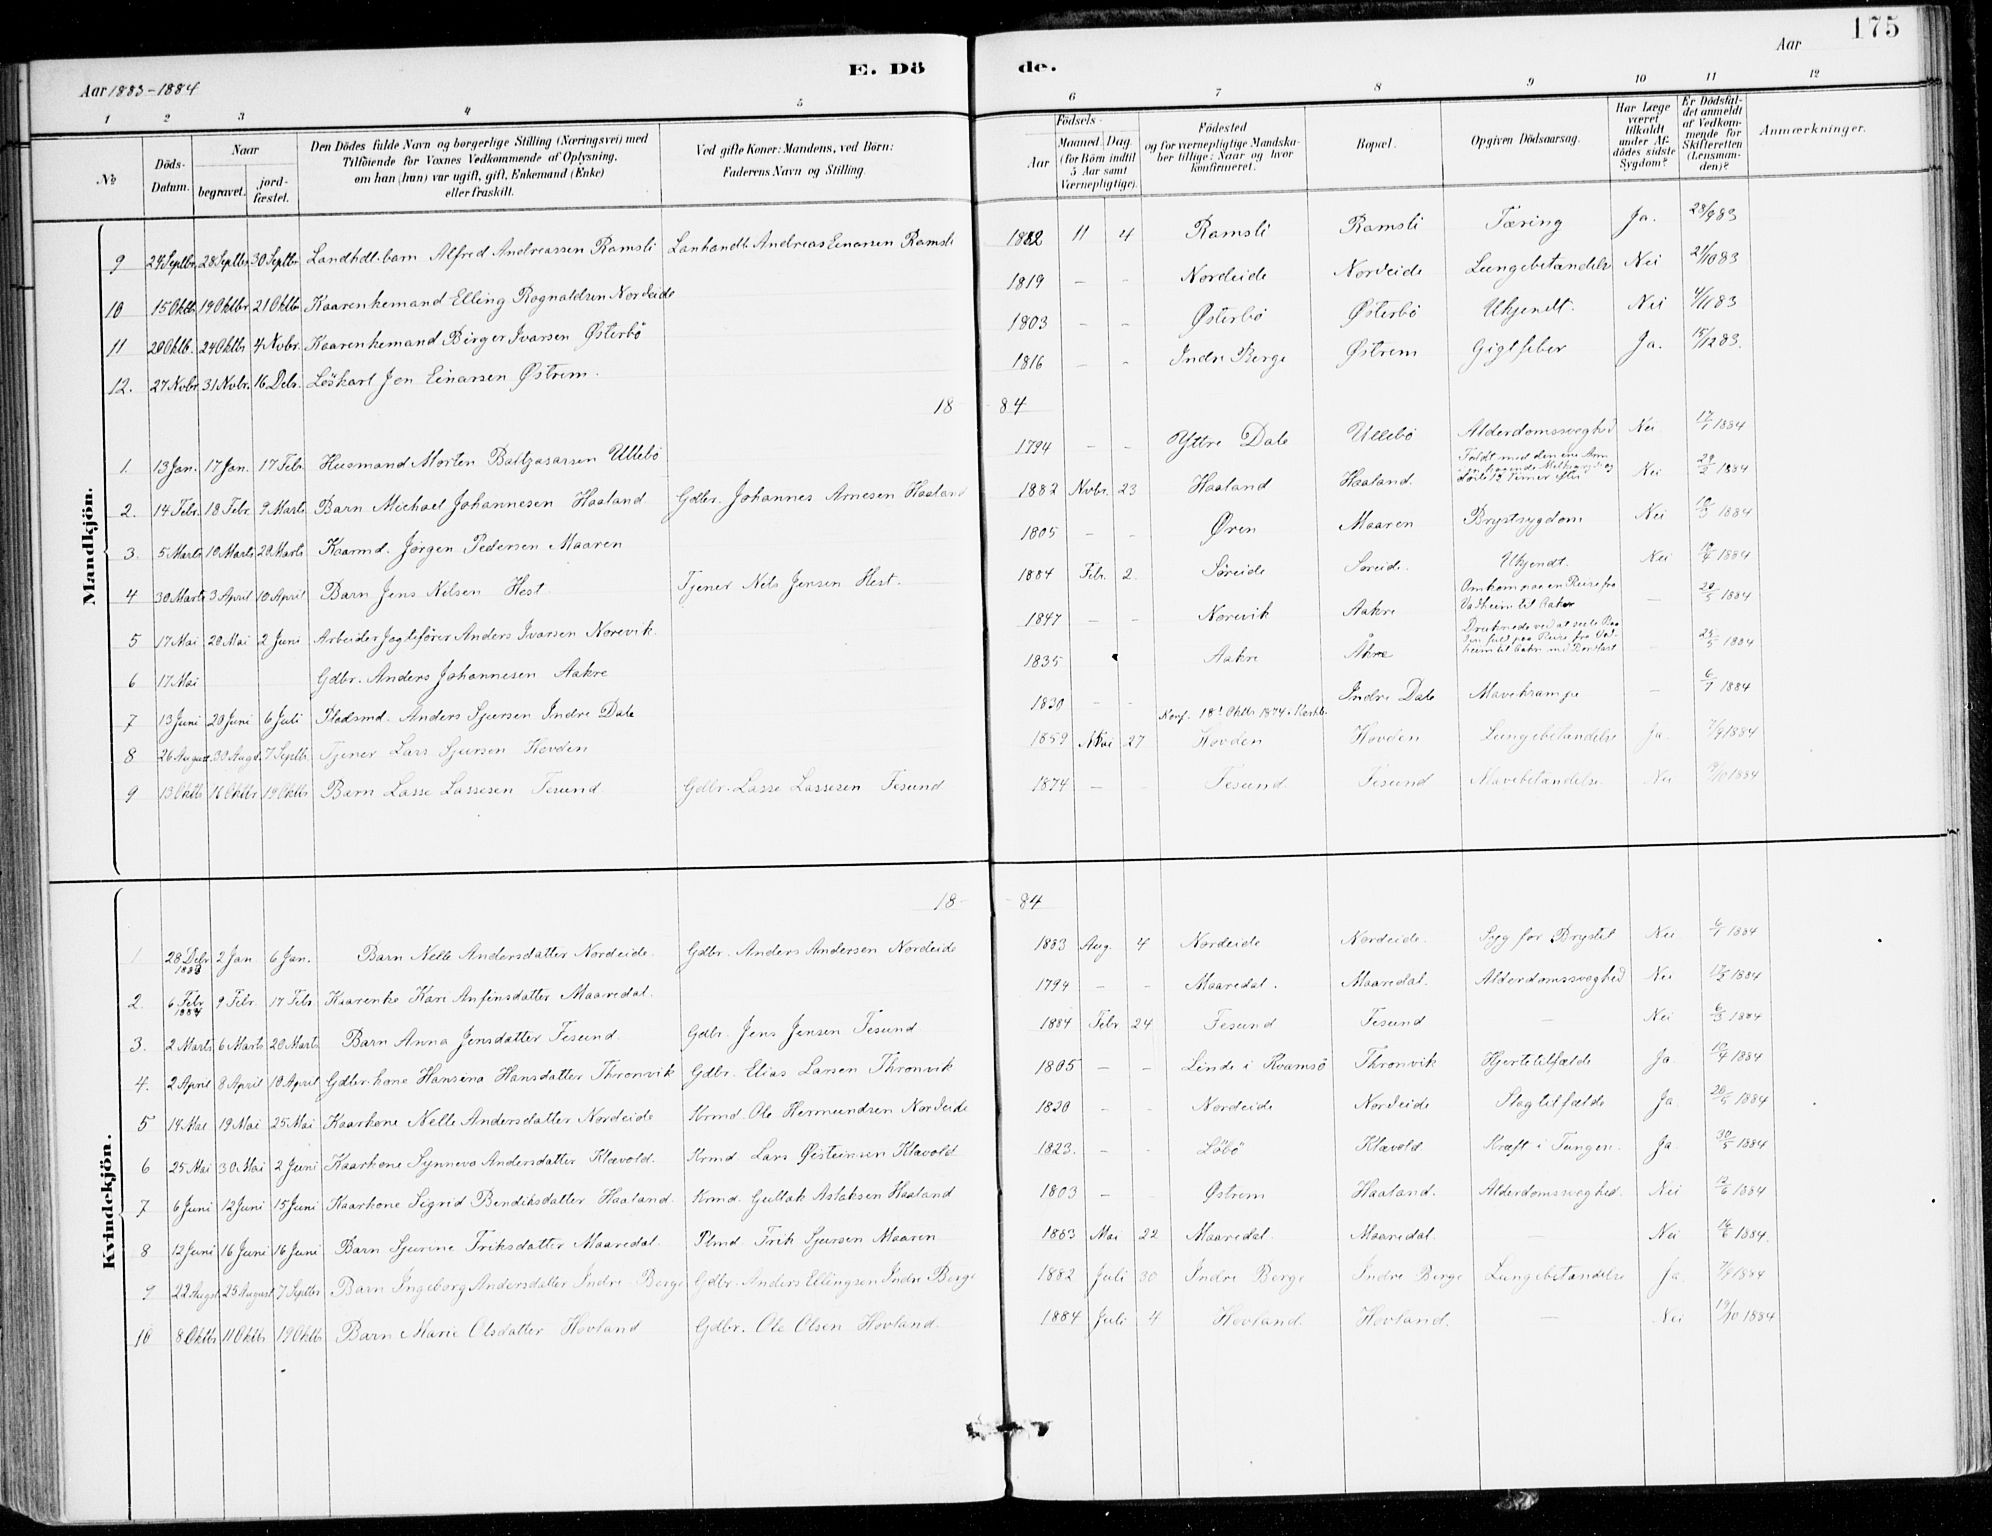 175
Aar 1883-1884
E. Dö
de.
Aar
1 2 3 4 5 6 7 8 9 10 11 12
№
Döds-Datum.
Naar
begravet.
jord-fæstet.
Den Dödes fulde Navn og borgerlige Stilling (Næringsvei) med
Tilföiende for Voxnes Vedkommende af Oplysning,
om han (hun) var ugift, gift, Enkemand (Enke)
eller fraskilt.
Ved gifte Koner: Mandens, ved Börn:
Faderens Navn og Stilling.
Födsels-
Aar
Maaned Dag
(for Börn indtil
5 Aar samt
Værnepligtige).
Födested
og for værnepligtige Mandska-
ber tillige: Naar og hvor
konfirmeret.
Bopæl.
Opgiven Dödsaarsag.
Har Læge
været
tilkaldt
under Af-
dödes sidste
Sygdom?
Er Dödsfal-
det anmeldt
af Vedkom-
mende for
Skifteretten
(Lensman-
den)?
Anmærkninger.
Mandkjön.
9 24 Septbr. 28 Septbr 30 Septbr Landhdl. barn Alfred Andreassen Ramsli Lanhandl. Andreas Einarsen Ramsli 1882 11 4 Ramsli Ramsli Tæring Ja. 28/9 83
10 15 Oktb. 19 Oktbr. 21 Oktb. Kaarenkemand Elling Rognaldsen Nordeide 1819 - - Nordeide Nordeide Lungebetændelse Nei 21/10 83
11 20 Oktb. 24 Oktb. 4 Novbr. Kaarenkemand Birger Ivarsen Østerbö 1803 - - Østerbö Østerbö Ukjendt. Nei 4/11 83
12. 27 Novbr. 31 Novbr. 16 Debr. Löskarl Jon Einarsen Østrem. 1816 - - Indre Berge Østrem Gigtfeber Ja. 15/12 83.
18 84
1. 13 Jan. 17 Jan. 17 Febr. Husmand Morten Baltzasarsen Ullebö 1794 - - Yttre Dale Ullebö Alderdomssvaghed Nei 17/1 1884
2. 14 Febr. 18 Febr. 9 Marts Barn Michael Johannesen Haaland Gdbr. Johannes Arnesen Haaland 1882 Novbr. 23 Haaland Haaland. Faldt med den ene Arm Nei 29/2 1884
3. 5 Marts 10 Marts 20 Marts Kaarmd. Jørgen Pedersen Maaren 1805 - - Øren Maaren Brystsygdom Nei 10/3 1884
4 30 Marts 3 April 10 April Barn Jens Nilsen Hest. Tjener Nils Jensen Hest. 1884 Febr. 2. Söreide Söreide. Ukjendt. Nei 10/4 1884
5 17 Mai 20 Mai 2 Juni Arbeider Jagtefører Anders Ivarsen Norevik. 1847 - - Norevik Aakre Omkom paa en Reise fra Vadheim til Aakre - 20/5 1884
6 17 Mai Gdbr. Anders Johannesen Aakre 1835 Aakre Åkre Druknede ved at seile paa Reise fra Vadheim til Aakre - 25/5 1884
7 13 Juni 20 Juni 6 Juli Pladsmd. Anders Sjursen Indre Dale 1830 - - Indre Dale Mavekrampe - 6/7 1884
8 26 August 30 Augst. 7 Septbr. Tjener Lars Sjursen Hovden 1859 Mai 27 Konf. 18. Oktb. 1874 Hovden Hovden Lungebetændelse Ja. 7/9 1884
9 13 Oktb 16 Oktbr 19 Oktb Barn Lasse Lassesen Tesund. Gdbr. Lasse Lassesen Tesund 1874 - - Tesund. Tesund Mavebetændelse Nei 19/10 1884
Kvindekjön.
18 84
1. 28 Debr. 1883 2 Jan. 6 Jan. Barn Nelle Andersdatter Nordeide. Gdbr. Anders Andersen Nordeide 1883 Aug. 4 Nordeide Nordeide. Syg for Brystet Nei 6/1 1884
2. 6 Febr. 1884 9 Febr. 17 Febr. Kaarenke Kari Anfinsdatter Maaredal. 1794 - - Maaredal. Maaredal. Alderdomssvaghed Nei 17/2 1884
3. 2 Marts 6 Marts 20 Marts Barn Anna Jensdatter Tesund. Gdbr. Jens Jensen Tesund 1884 Febr 24 Tesund Tesund - Nei 6/3 1884
4. 2 April 8 April 10 April Gdbr. kone Hansina Hansdatter Thronvik Gdbr. Elias Larsen Thronvik 1805 - - Linde i Kvamsö Thronvik Hjertetilfælde Ja. 10/4 1884
5 14 Mai 19 Mai 25 Mai Kaarkone Nelle Andersdatter Nordeide Krmd. Ole Hermundsen Nordeide 1820 - - Nordeide Nordeide Slagtilfælde Ja. 26/5 1884
6 25 Mai 30 Mai 2 Juni Kaarkone Synneva Andersdatter Klævold. Krmd Lars Øisteinsen Klævold 1823. - - Löbö Klævold Kræft i Tungen. Ja. 30/5 1884
7 6 Juni 12 Juni 15 Juni Kaarkone Sigrid Bendiksdatter Haaland. Krmd. Gullak Aslaksen Haaland 1803 - Østrem Haaland. Alderdomssvaghed. Nei 12/6 1884
8 12 Juni 16 Juni 16 Juni Barn Sjurine Eriksdatter Maaredal. Plmd Erik Sjursen Maaren 1883 Mai 22 Maaredal. Maaredal. - Nei 16/6 1884.
9 22 Augst. 25 August 7 Septbr Barn Ingeborg Andersdatter Indre Berge Gdbr. Anders Ellingsen Indre Berge 1882 Juli 30 Indre Berge Indre Berge Lungebetændelse Ja. 7/9 1884
10 8 Oktb 11 Oktb 19 Oktb. Barn Marie Olsdatter Hovland Gdbr. Ole Olsen Hovland. 1884 Juli 4 Hovland. Hovland. - Nei 19/10 1884